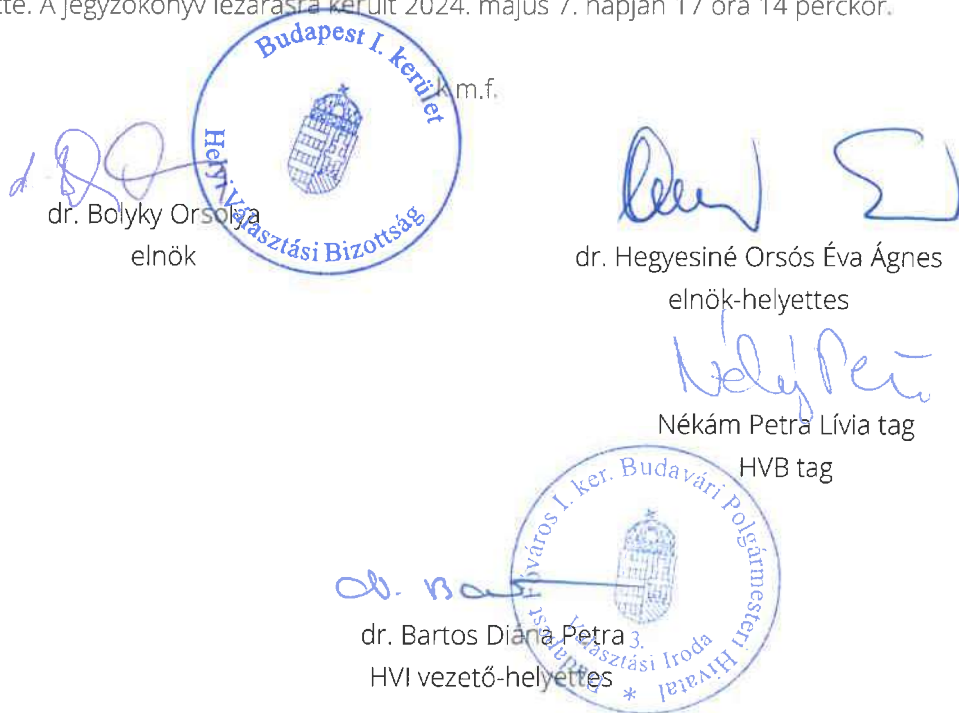 A jegyzőkönyv lezárásra került 2024. május 7. napján 17 óra 14 perckor.
k.m.f.
Budapest I. kerület
Helyi Választási Bizottság
dr. Bolyky Orsolya
elnök
dr. Hegyesiné Orsós Éva Ágnes
elnök-helyettes
Nékám Petra Lívia tag
HVB tag
Budapest Főváros I. ker. Budavári Polgármesteri Hivatal *
Választási Iroda
3.
dr. Bartos Diána Petra
HVI vezető-helyettes